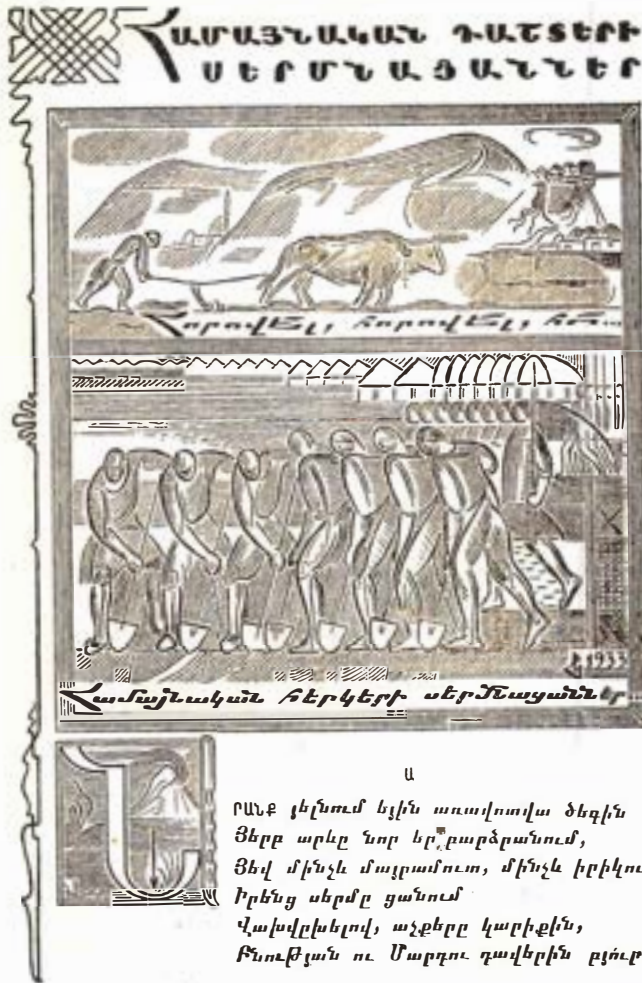 ՀԱՄԱՅՆԱԿԱՆ ԴԱՇՏԵՐԻ
ՍԵՐՄՆԱՑԱՆՆԵՐ
Հորովել, հորովել, հո...
1933
Համայնական հերկերի սերմնացաններ
Ա
ՆՐԱՆՔ յելնում եյին առավոտվա ծեգին
Յերբ արևը նոր եր բարձրանում,
Յեվ մինչև մայրամուտ, մինչև իրիկու
Իրենց սերմը ցանում
Վախվըխելով, աչքերը կարիքին,
Բնության ու Մարդու դավերին բյուր